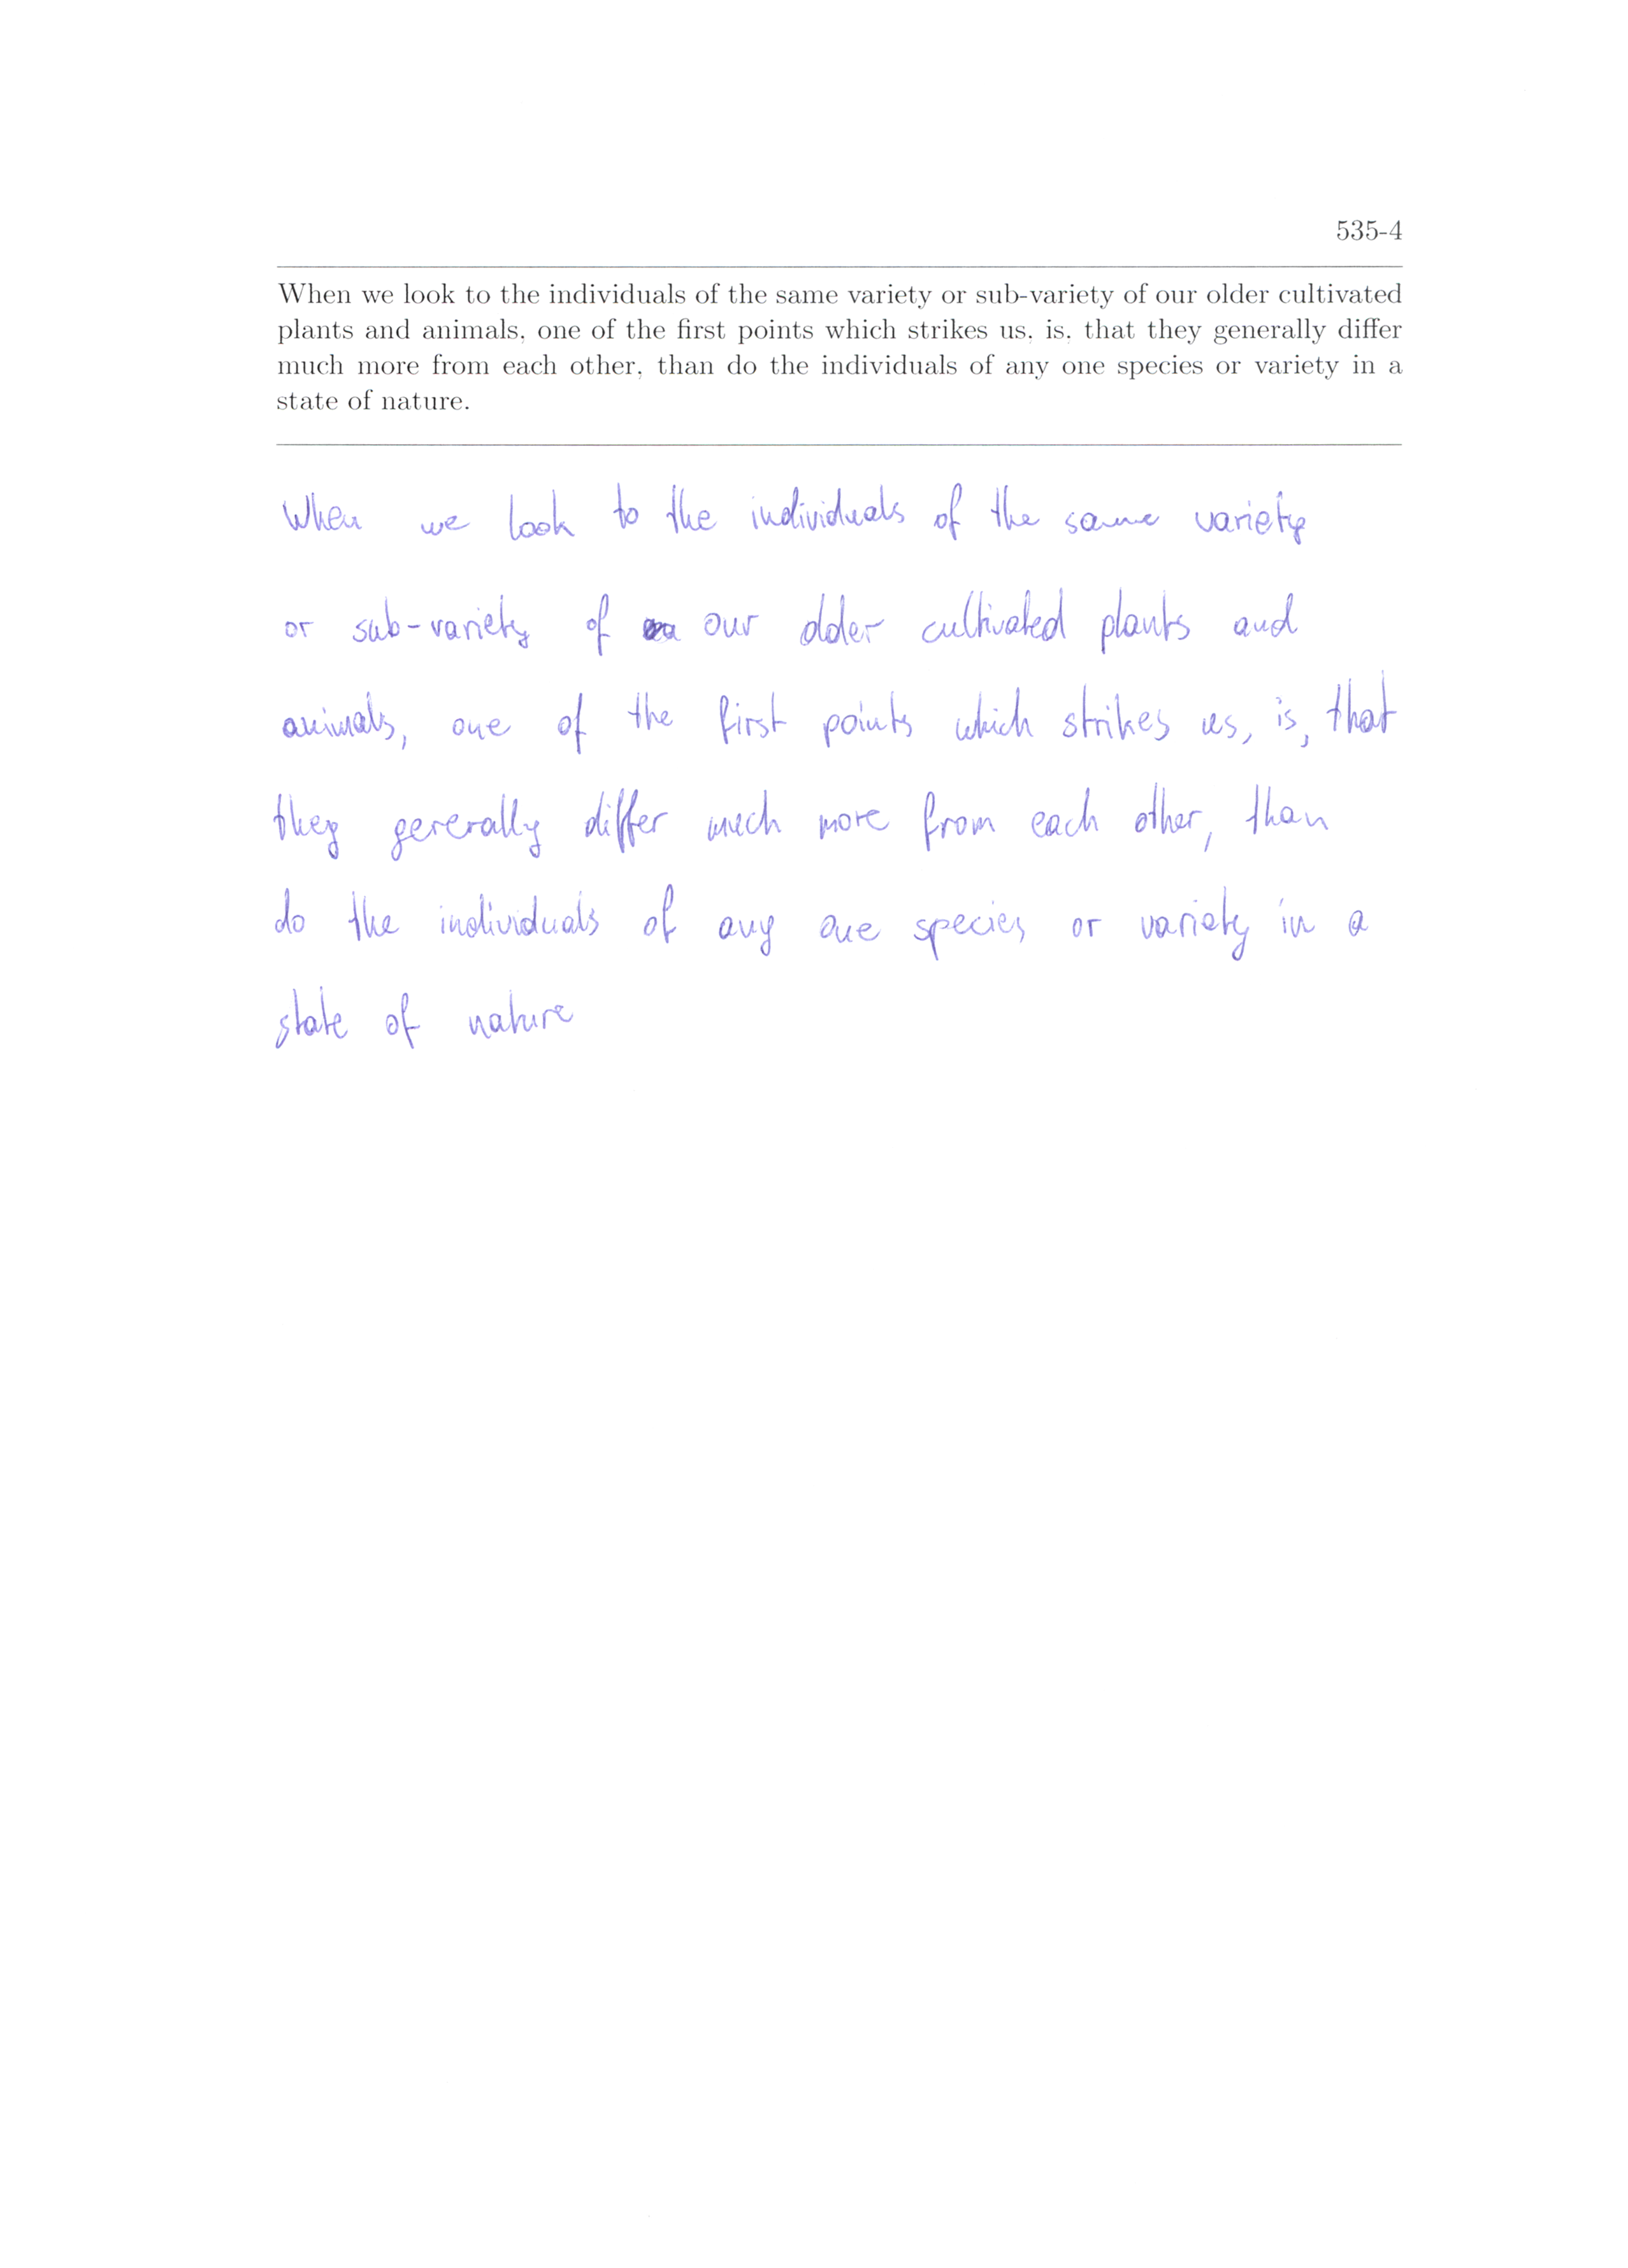 535-4
When we look to the individuals of the same variety or sub-variety of our older cultivated
plants and animals, one of the first points which strikes us, is, that they generally differ
much more from each other, than do the individuals of any one species or variety in a
state of nature.
When we look to the individuals of the same variety
or sub-variety of our older cultivated plants and
animals, one of the first points which strikes us, is, that
they gererally differ much more from each other, than
do the individuals of any one species or variety in a
state of nature